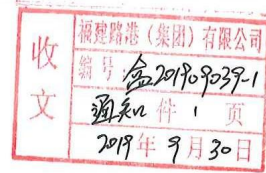 收文
福建路港（集团）有限公司
编号 盒201909039-1
通知 件 1 页
2019年9月30日